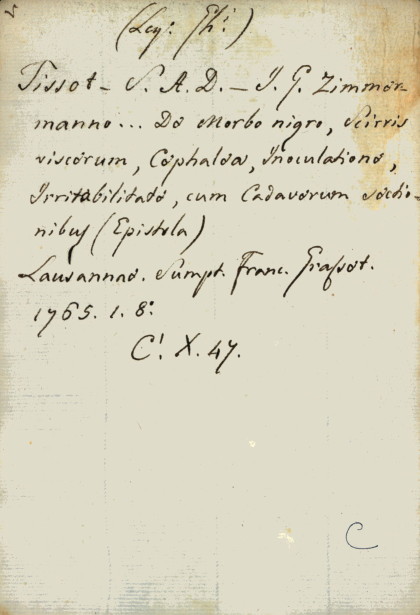 (Leg: Th:)
Tissot - S. A. D. - J. G. Zimmer-
manno... De Morbo nigro, Scirris
viscerum, Cephalea, Inoculatione,
Irritabilitade, cum Cadaverum sectio-
nibus (Epistola)
Lausannae. Sumpt. Franc. Grasset.
1765. 1. 8º
C! X. 47.
C